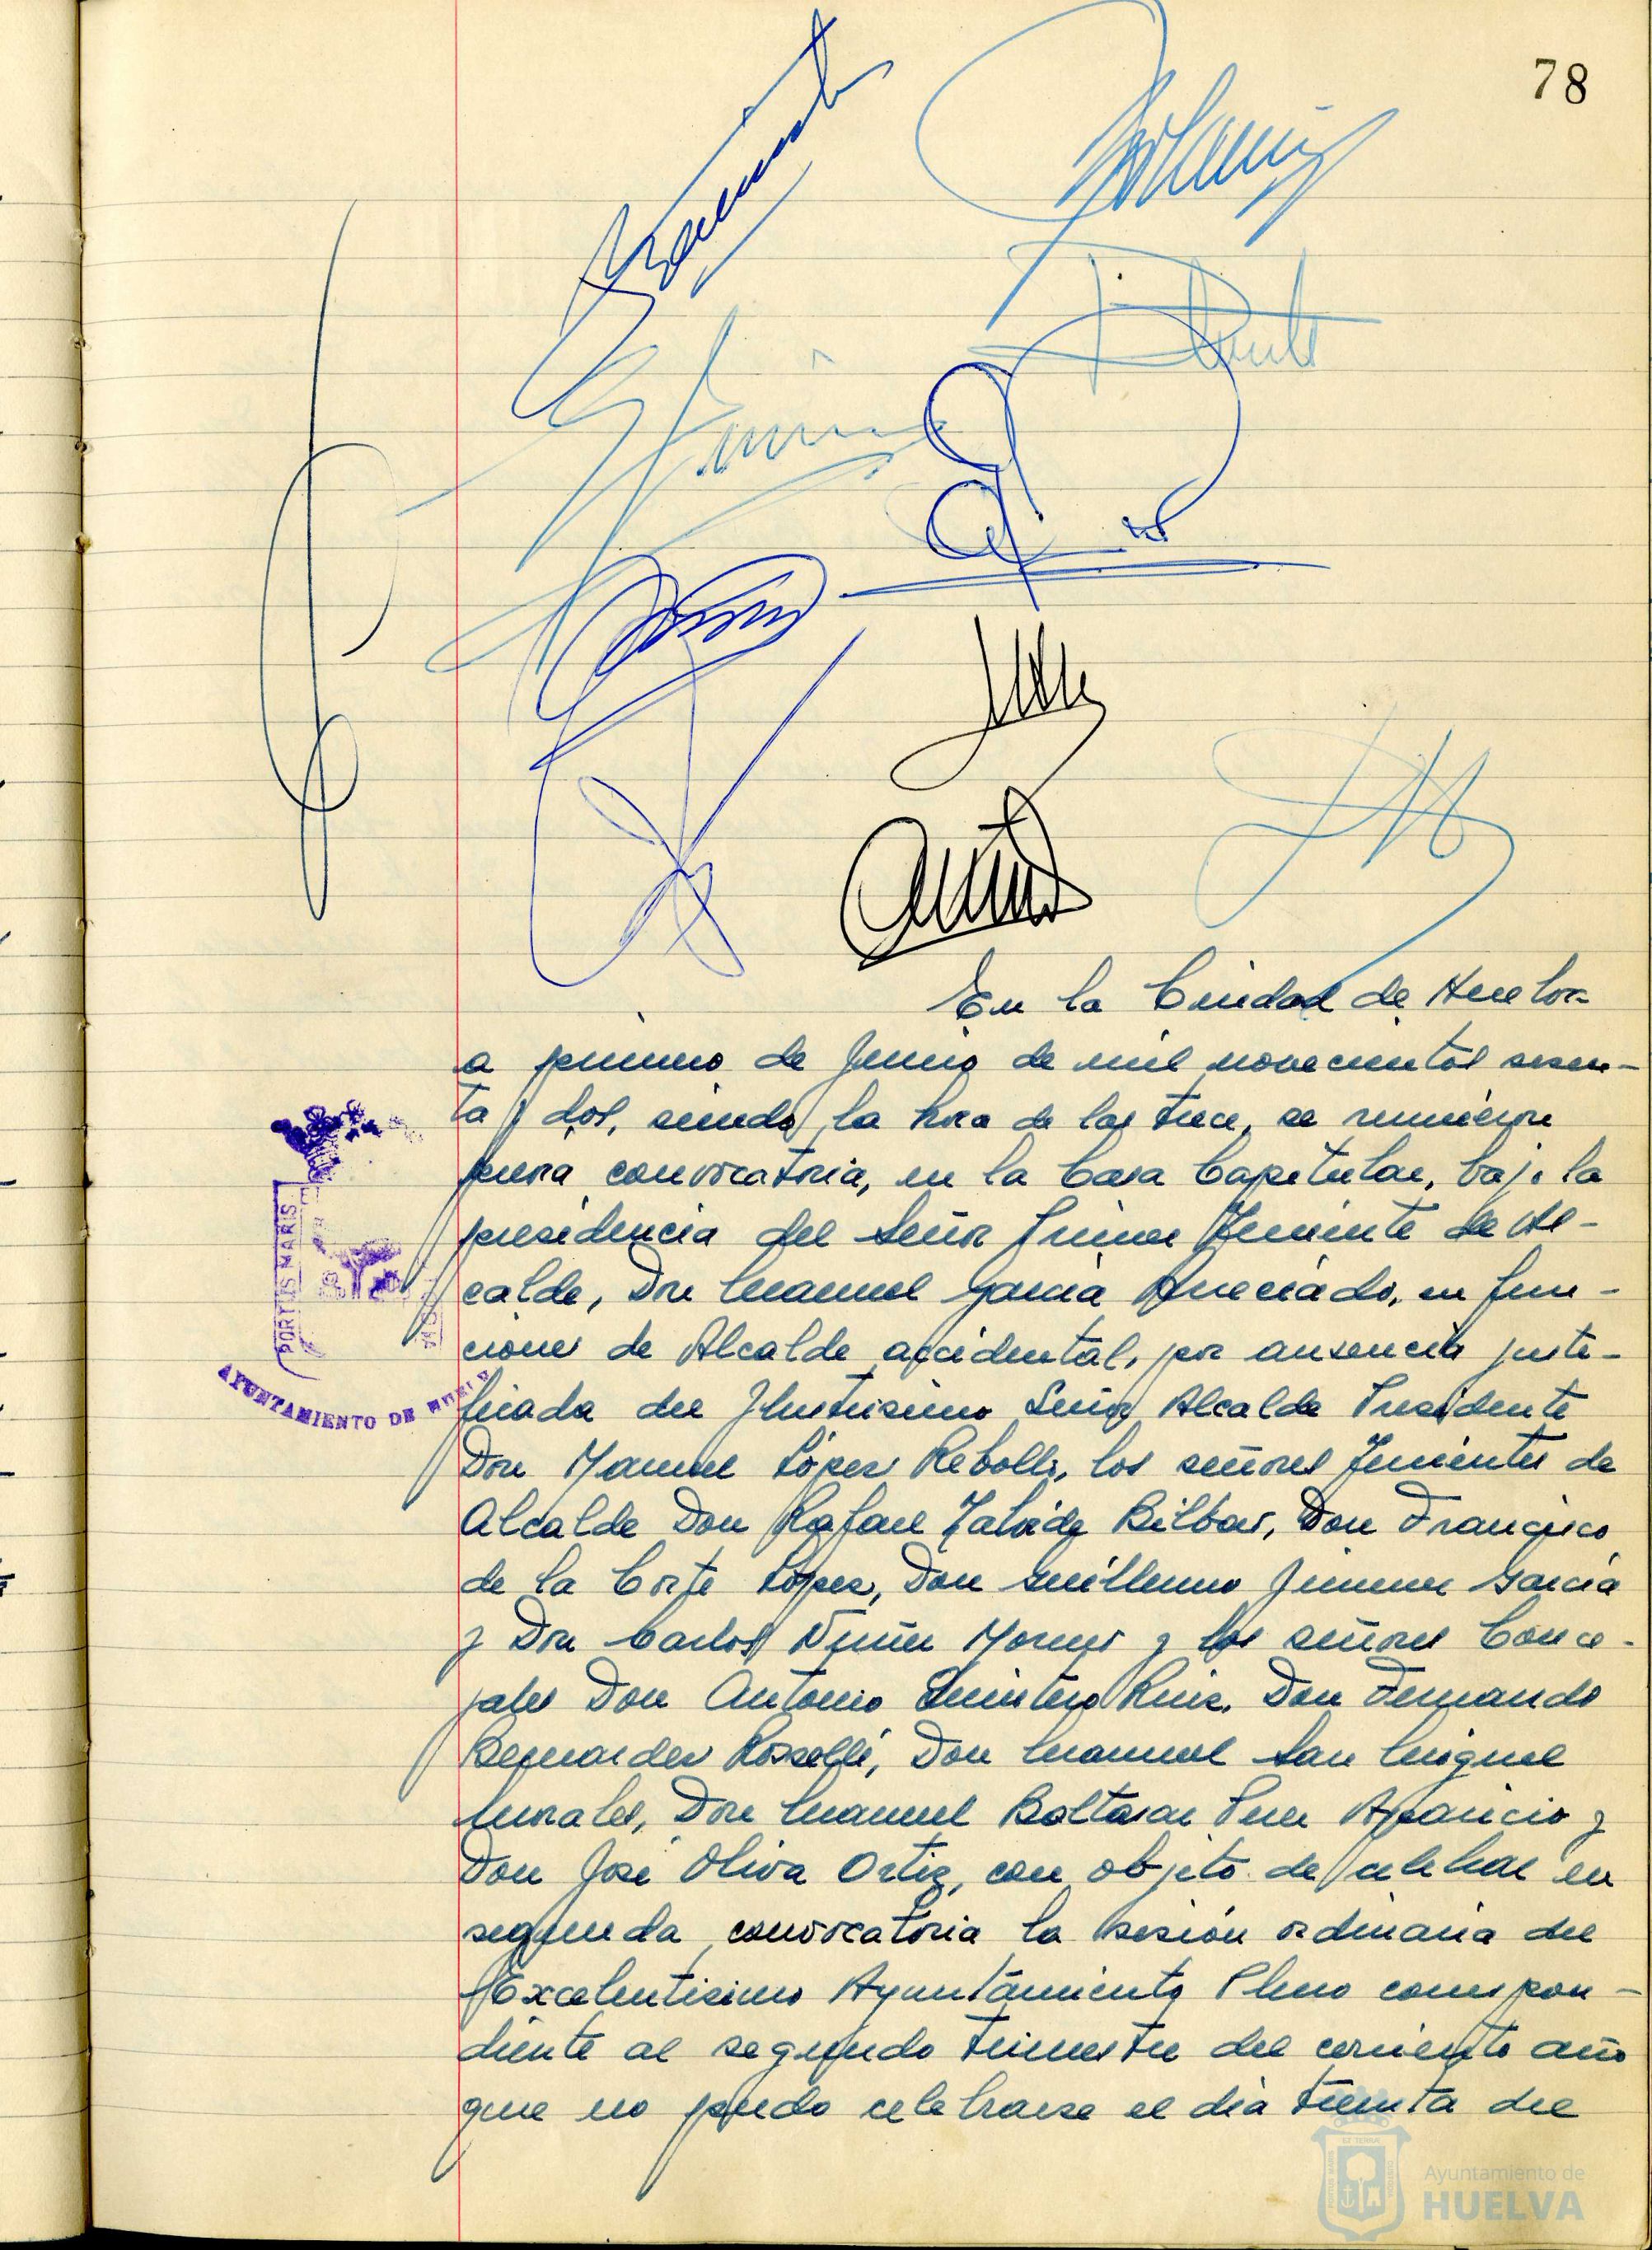 78
En la Ciudad de Huelva
a primero de Junio de mil novecientos sesen-
ta y dos, siendo la hora de las trece, se reunieron
previa convocatoria, en la Casa Capitular, bajo la
presidencia del Señor Primer Teniente de Al-
calde, Don Manuel García, en fun-
ciones de Alcalde accidental, por ausencia justi-
ficada del Ilustrisimo Señor Alcalde Presidente
Don Manuel López Rebollo, los señores Tenientes de
Alcalde Don Rafael Bilbao, Don Francisco
de la Corte López, Don Guillermo Jimenez García
y Don Carlos Núñez y los señores Conce-
jales Don Antonio Quintero Ruiz, Don Fernando
Bernardez Rosselló, Don Manuel San Miguel
Morales, Don Manuel Baltasar Aparicio y
Don José Oliva Ortiz, con objeto de celebrar en
segunda convocatoria la sesión ordinaria del
Excelentisimo Ayuntamiento Pleno correspon-
diente al segundo trimestre del corriente año
que no pudo celebrarse el día treinta del
PORTUS MARIS
AYUNTAMIENTO DE HUELVA
Ayuntamiento de
HUELVA